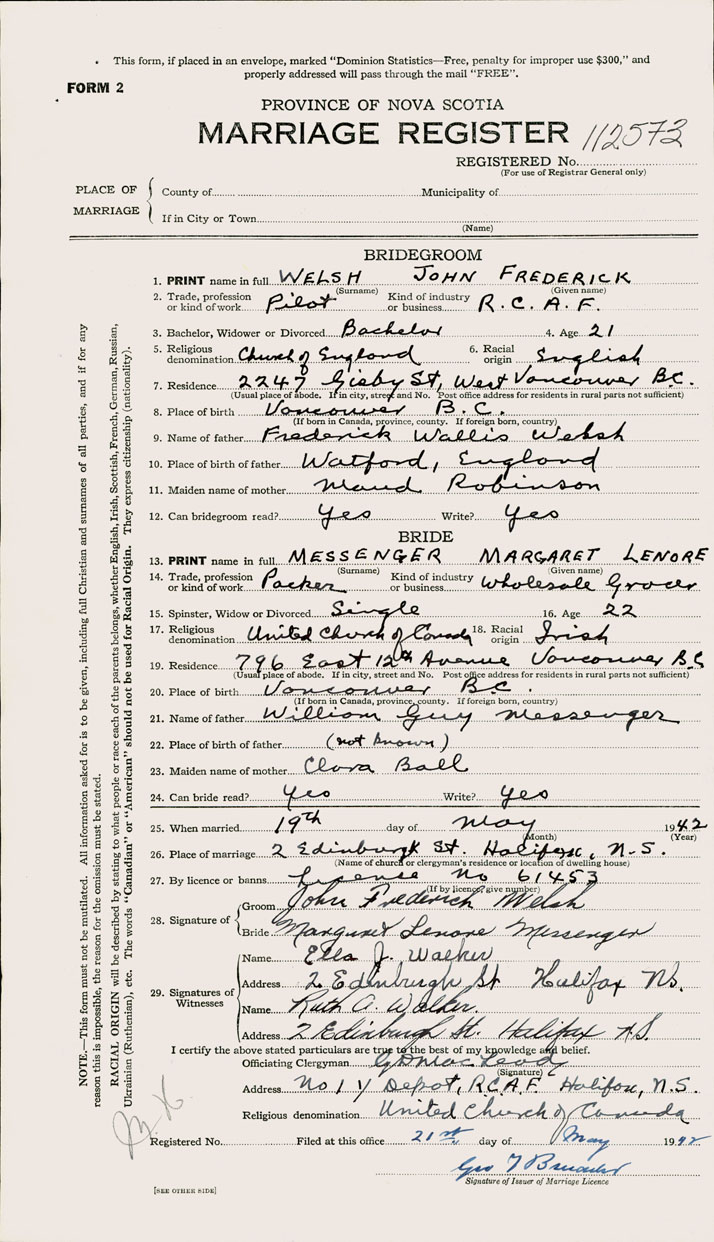 This form, if placed in an envelope, marked "Dominion Statistics—Free, penalty for improper use $300," and
properly addressed will pass through the mail "FREE".
FORM 2
PROVINCE OF NOVA SCOTIA
MARRIAGE REGISTER 112573
REGISTERED No.
(For use of Registrar General only)
PLACE OF MARRIAGE
County of Municipality of
If in City or Town
(Name)
BRIDEGROOM
1. PRINT name in full WELSH JOHN FREDERICK
(Surname) (Given name)
2. Trade, profession or kind of work Pilot Kind of industry or business R.C.A.F.
3. Bachelor, Widower or Divorced Bachelor 4. Age 21
5. Religious denomination Church of England 6. Racial origin English
7. Residence 2247 Gisby St, West Vancouver B.C.
(Usual place of abode. If in city, street and No. Post office address for residents in rural parts not sufficient)
8. Place of birth Vancouver B.C.
(If born in Canada, province, county. If foreign born, country)
9. Name of father Frederick Wallis Welsh
10. Place of birth of father Watford, England
11. Maiden name of mother Maud Robinson
12. Can bridegroom read? Yes Write? Yes
BRIDE
13. PRINT name in full MESSENGER MARGARET LENORE
(Surname) (Given name)
14. Trade, profession or kind of work Packer Kind of industry or business Wholesale Grocer
15. Spinster, Widow or Divorced Single 16. Age 22
17. Religious denomination United Church of Canada 18. Racial origin Irish
19. Residence 796 East 12th Avenue Vancouver B.C
(Usual place of abode. If in city, street and No. Post office address for residents in rural parts not sufficient)
20. Place of birth Vancouver B.C.
(If born in Canada, province, county. If foreign born, country)
21. Name of father William Guy Messenger
22. Place of birth of father (not known)
23. Maiden name of mother Clara Ball
24. Can bride read? Yes Write? Yes
25. When married 19th day of May 1942
(Month) (Year)
26. Place of marriage 2 Edinburgh St. Halifax, N.S.
(Name of church or clergyman's residence or location of dwelling house)
27. By licence or banns License No 61453
(If by licence, give number)
28. Signature of
Groom John Frederick Welsh
Bride Margaret Lenore Messenger
29. Signatures of Witnesses
Name Ella J. Walker
Address 2 Edinburgh St Halifax NS.
Name Ruth A. Walker.
Address 2 Edinburgh St. Halifax N.S.
I certify the above stated particulars are true to the best of my knowledge and belief.
Officiating Clergyman
(Signature)
Address No 1 Y Depot, R.C.A.F. Halifax, N.S.
Religious denomination United Church of Canada
Registered No. Filed at this office 21st day of May 1942
Geo
Signature of Issuer of Marriage Licence
[SEE OTHER SIDE]
NOTE.—This form must not be mutilated. All information asked for is to be given, including full Christian and surnames of all parties, and if for any
reason this is impossible, the reason for the omission must be stated.
RACIAL ORIGIN will be described by stating to what people or race each of the parents belongs, whether English, Irish, Scottish, French, German, Russian,
Ukrainian (Ruthenian), etc. The words "Canadian" or "American" should not be used for Racial Origin. They express citizenship (nationality).